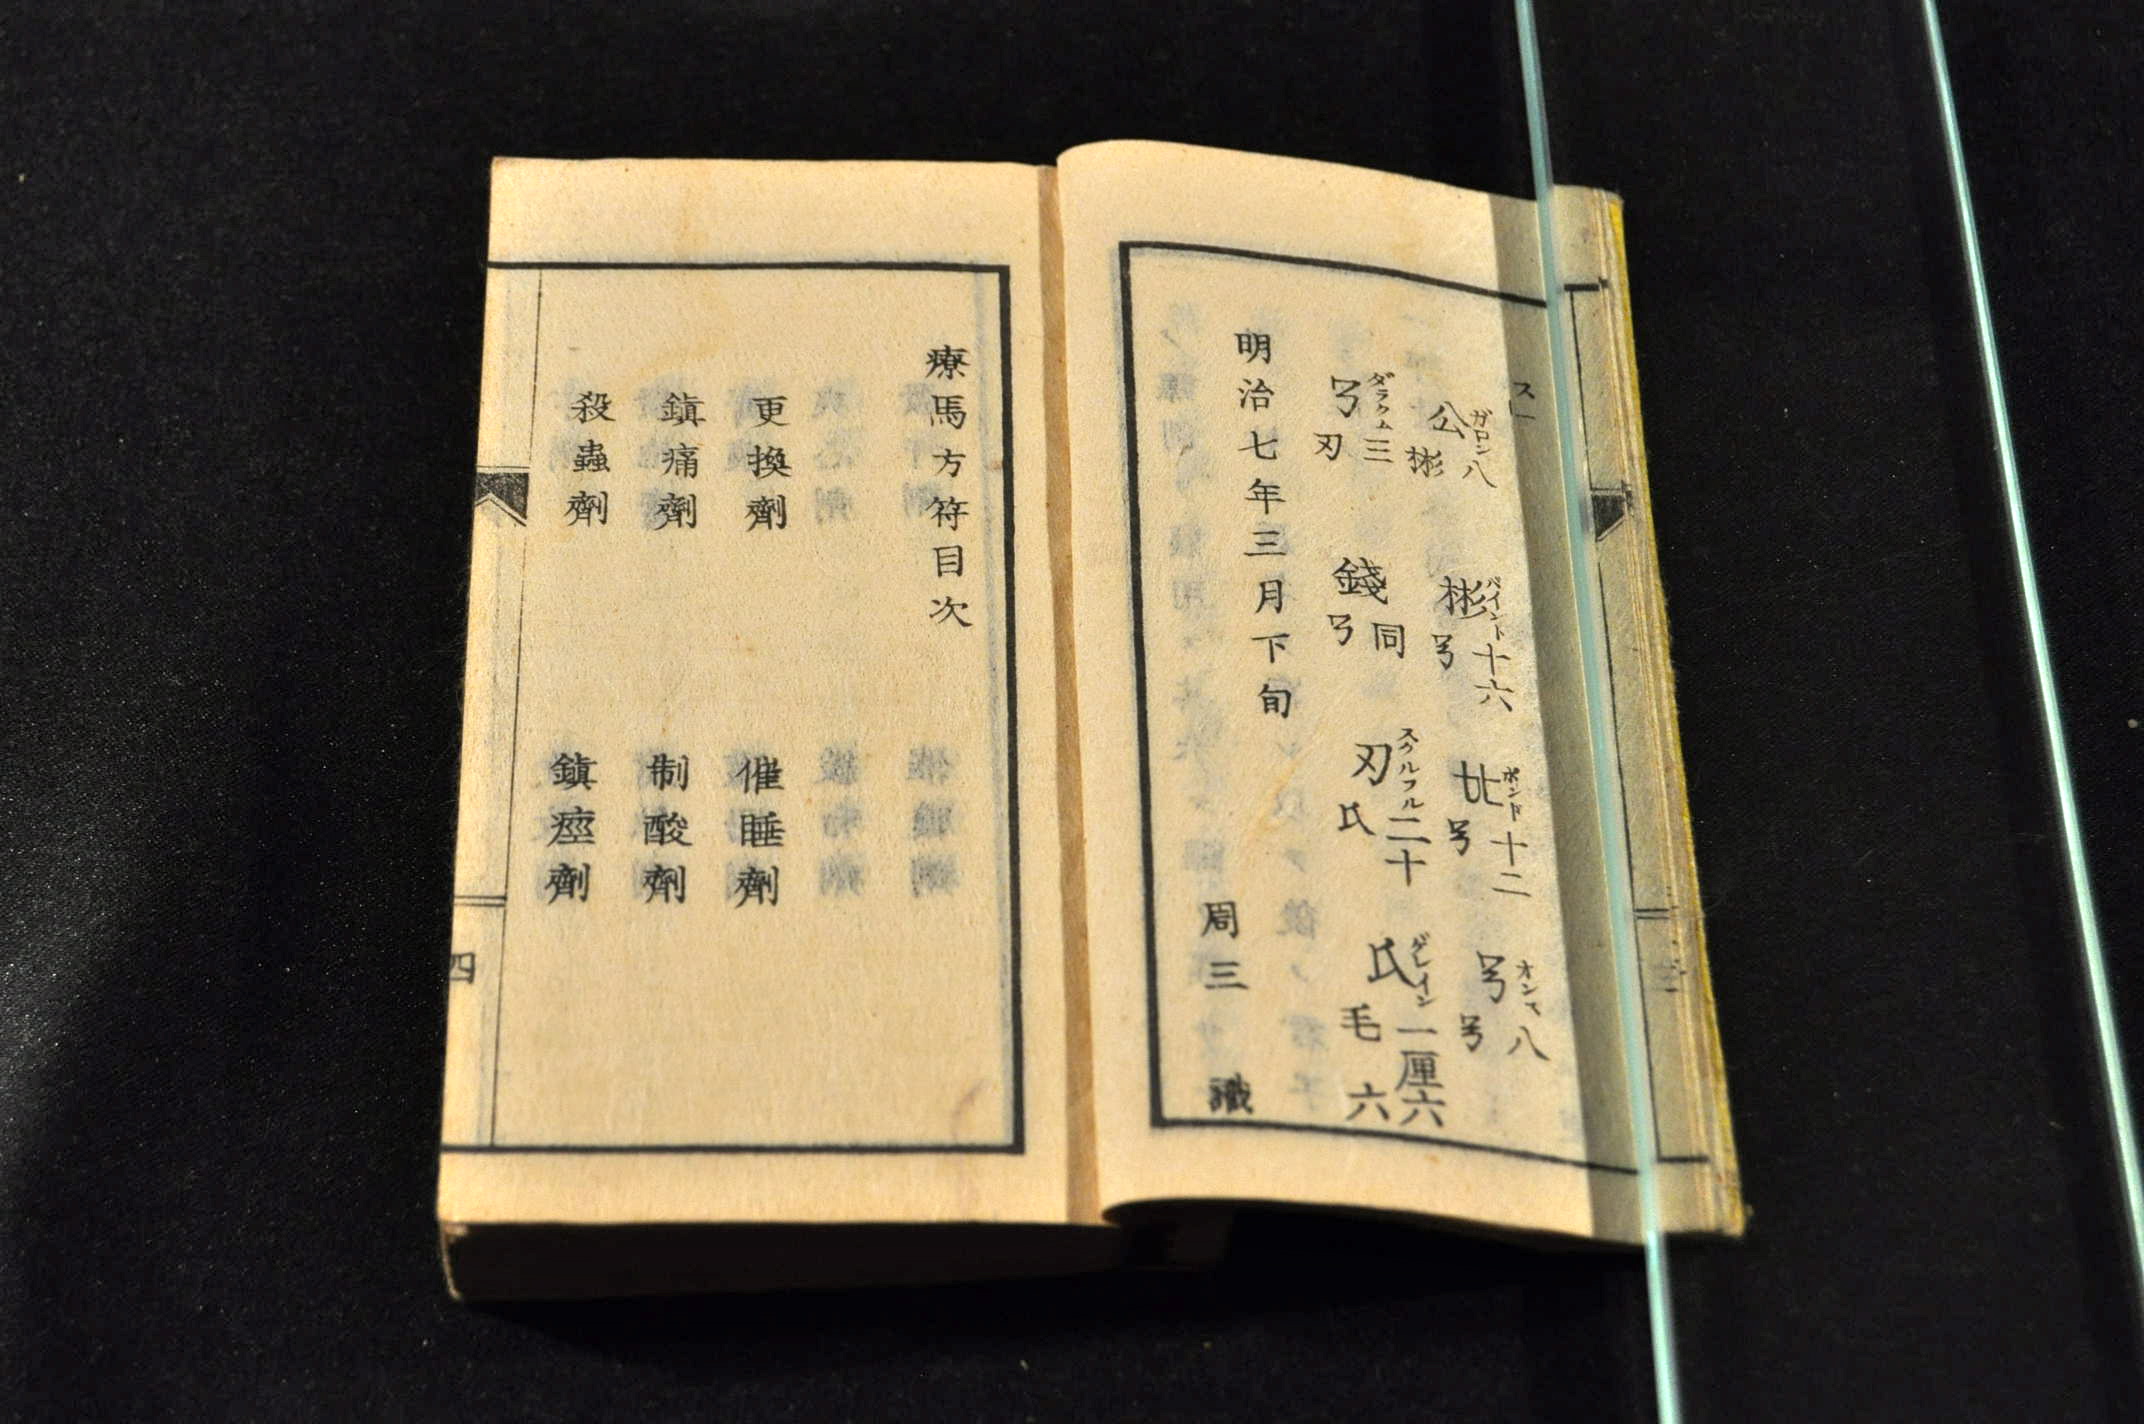 公 ガロン 八 彬
彬 パイント 十六 㕩
廿 ポンド 十二 㕩
オンス 八
ダラクム 三 刃
錢 同
刃 スクルフル 二十 氏
氏 ゲレイン 一厘六毛六
明治七年三月下旬
周三 識
療馬方符目次
更換劑 催睡劑
鎮痛劑 制酸劑
殺蟲劑 鎮痙劑
四